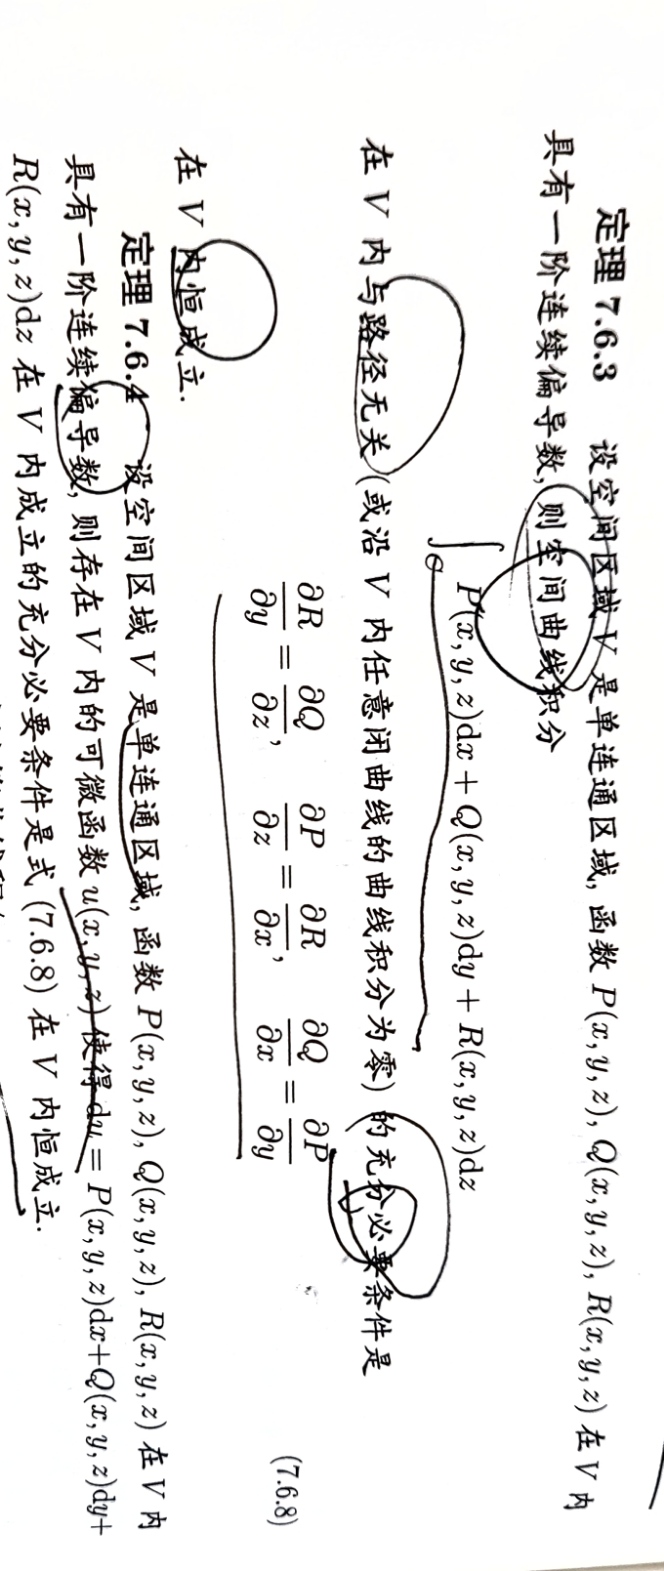 定理 7.6.3 设空间区域 V 是单连通区域, 函数 P(x, y, z), Q(x, y, z), R(x, y, z) 在 V 内
具有一阶连续偏导数, 则空间曲线积分
∫ P(x, y, z)dx + Q(x, y, z)dy + R(x, y, z)dz
在 V 内与路径无关 (或沿 V 内任意闭曲线的曲线积分为零) 的充分必要条件是
∂R/∂y = ∂Q/∂z, ∂P/∂z = ∂R/∂x, ∂Q/∂x = ∂P/∂y (7.6.8)
在 V 内恒成立.
定理 7.6.4 设空间区域 V 是单连通区域, 函数 P(x, y, z), Q(x, y, z), R(x, y, z) 在 V 内
具有一阶连续偏导数, 则存在 V 内的可微函数 u(x, y, z) 使得 du = P(x, y, z)dx+Q(x, y, z)dy+
R(x, y, z)dz 在 V 内成立的充分必要条件是式 (7.6.8) 在 V 内恒成立.